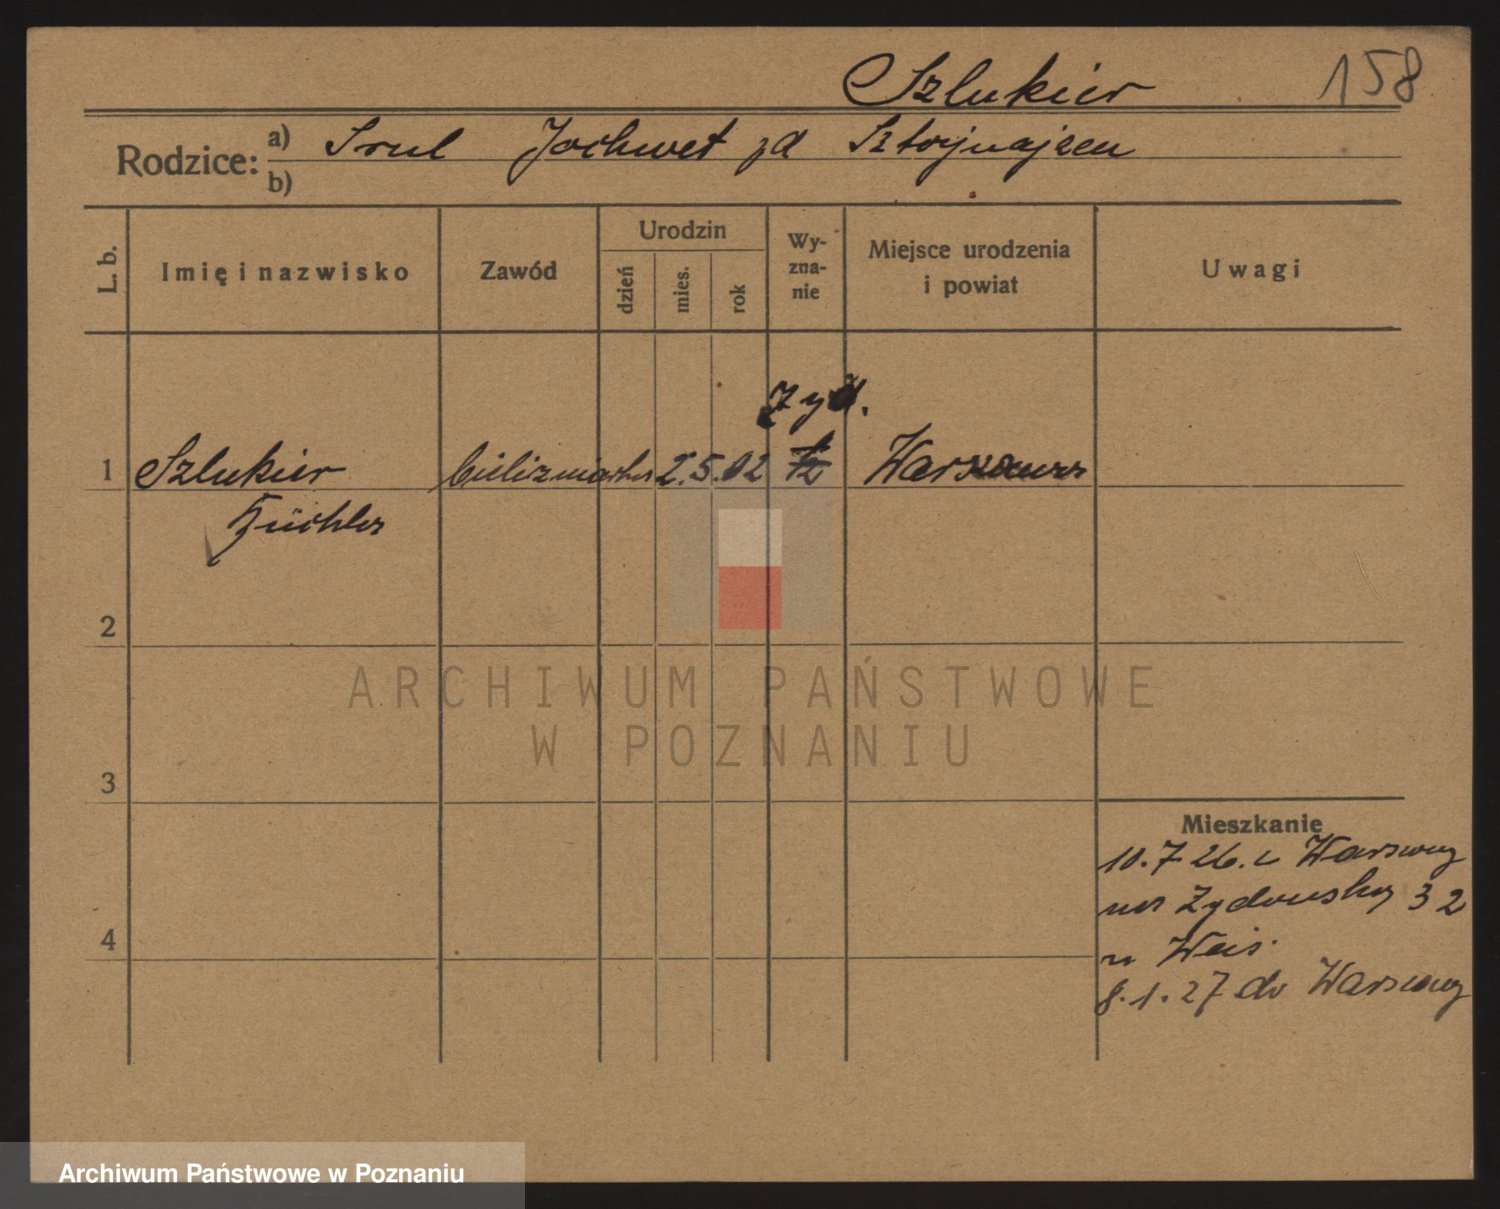 Szlukier
158
Rodzice:
a) Srul Jochwet zd Sztojnajzen
b)
L. b.
Imię i nazwisko
Zawód
Urodzin
dzień
mies.
rok
Wy-
zna-
nie
Miejsce urodzenia
i powiat
Uwagi
żyd.
1 Szlukier bieliźniarka 2.5.02 Warszawa
2
3
4
Mieszkanie
10.7 26. z Warszawy
na Żydowską 32
u Weis.
8.1.27 do Warszawy
ARCHIWUM PAŃSTWOWE
W POZNANIU
Archiwum Państwowe w Poznaniu